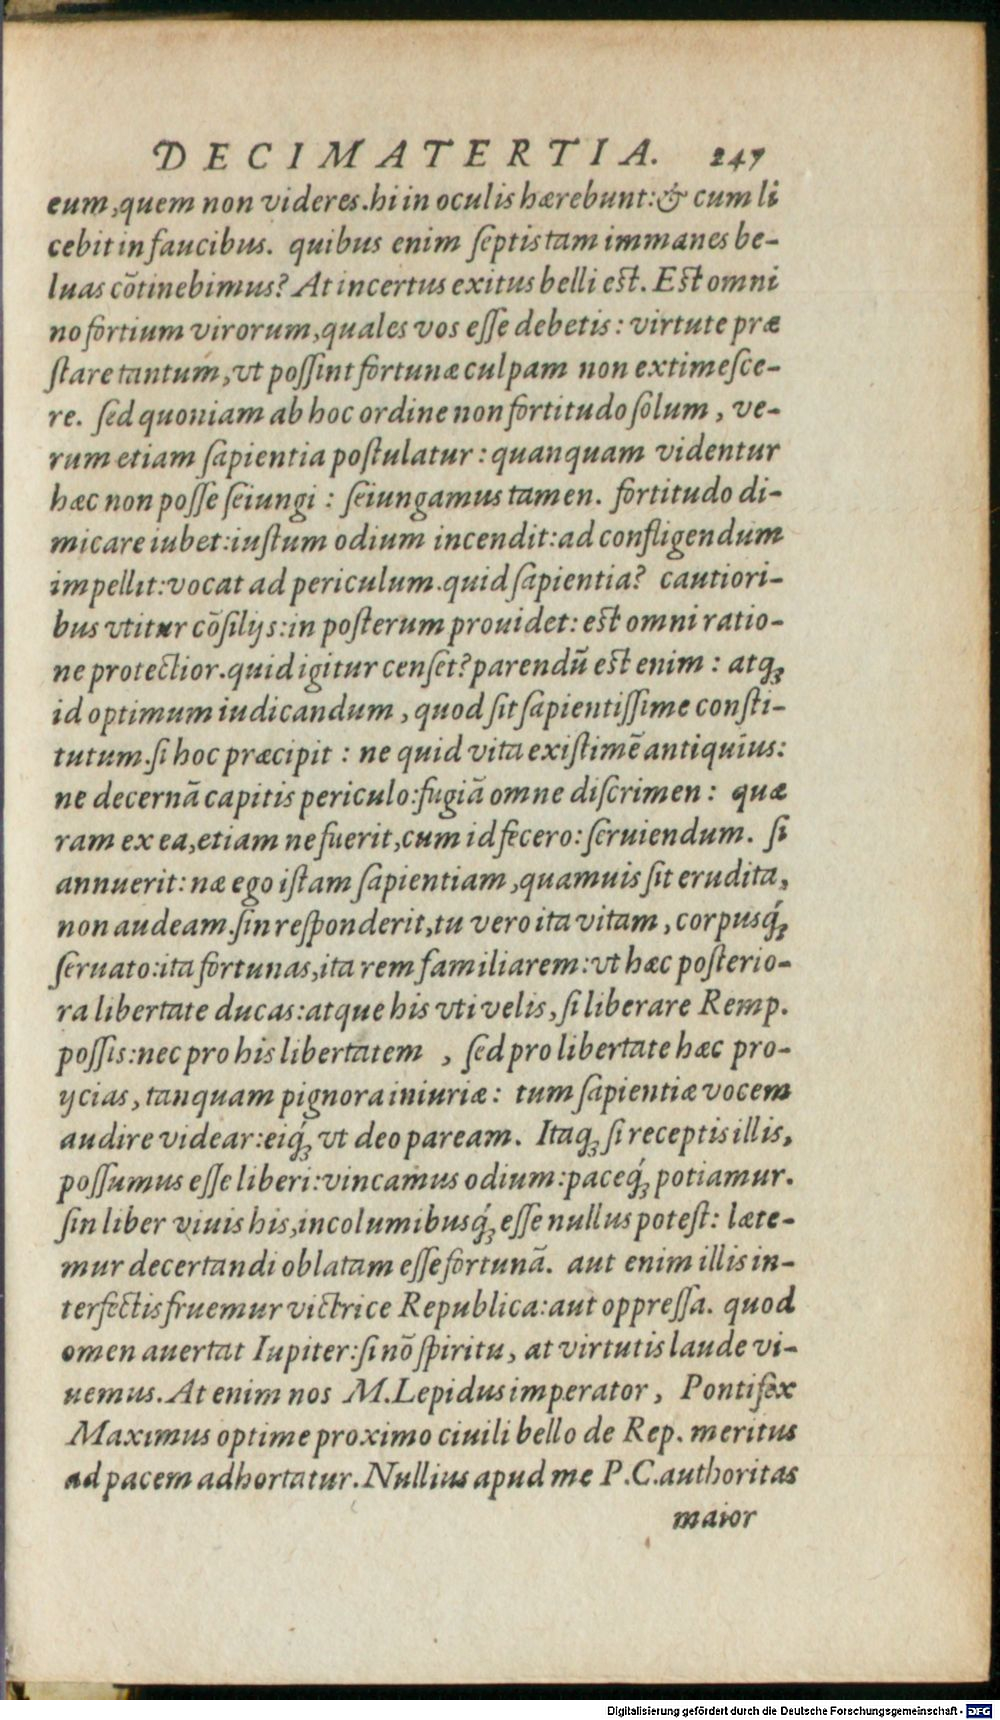 DECIMATERTIA. 247
eum, quem non videres. hi in oculis hærebunt: & cum li
cebit in faucibus. quibus enim ſeptis tam immanes be-
luas cõtinebimus? At incertus exitus belli est. Est omni
no fortium virorum, quales vos eſſe debetis: virtute præ
ſtare tantum, vt poſſint fortunæ culpam non extimeſce-
re. ſed quoniam ab hoc ordine non fortitudo ſolum, ve-
rum etiam ſapientia poſtulatur: quanquam videntur
hæc non poſſe ſeiungi: ſeiungamus tamen. fortitudo di-
micare iubet: iuſtum odium incendit: ad confligendum
impellit: vocat ad periculum. quid ſapientia? cautiori-
bus vtitur cõſilijs: in poſterum prouidet: est omni ratio-
ne protectior. quid igitur cenſet? parendũ est enim: atqꝫ
id optimum iudicandum, quod ſit ſapientiſſime conſti-
tutum. ſi hoc præcipit: ne quid vita exiſtimẽ antiquius:
ne decernã capitis periculo: fugiã omne diſcrimen: quæ
ram ex ea, etiam ne fuerit, cum id fecero: ſeruiendum. ſi
annuerit: næ ego iſtam ſapientiam, quamuis ſit erudita,
non audeam. ſin reſponderit, tu vero ita vitam, corpusq́ꝫ
ſeruato: ita fortunas, ita rem familiarem: vt hæc poſterio-
ra libertate ducas: atque his vti velis, ſi liberare Remp.
poſſis: nec pro his libertatem , ſed pro libertate hæc pro-
ijcias, tanquam pignora iniuriæ: tum ſapientiæ vocem
audire videar: eiq́ꝫ vt deo paream. Itaqꝫ ſi receptis illis,
poſſumus eſſe liberi: vincamus odium: paceq́ꝫ potiamur.
ſin liber viuis his, incolumibusq́ꝫ eſſe nullus potest: læte-
mur decertandi oblatam eſſe fortunã. aut enim illis in-
terfectis fruemur victrice Republica: aut oppreſſa. quod
omen auertat Iupiter: ſi nõ ſpiritu, at virtutis laude vi-
uemus. At enim nos M. Lepidus imperator, Pontifex
Maximus optime proximo ciuili bello de Rep. meritus
ad pacem adhortatur. Nullius apud me P.C. authoritas
maior
Digitalisierung gefördert durch die Deutsche Forschungsgemeinschaft - DFG